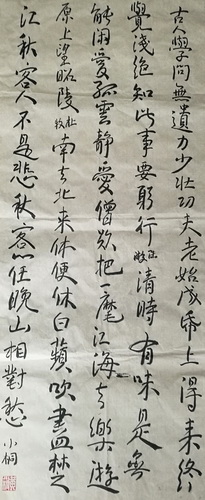 古人學問無遺力少壯功夫老始成紙上得来終
覺淺絕知此事要躬行 清時有味是無
能闲愛孤雲静愛僧欲把一麾江海去樂遊
原上望昭陵 南去北来休便休白蘋吹盡楚
江秋客人不是悲秋客一任晚山相對愁 小桐